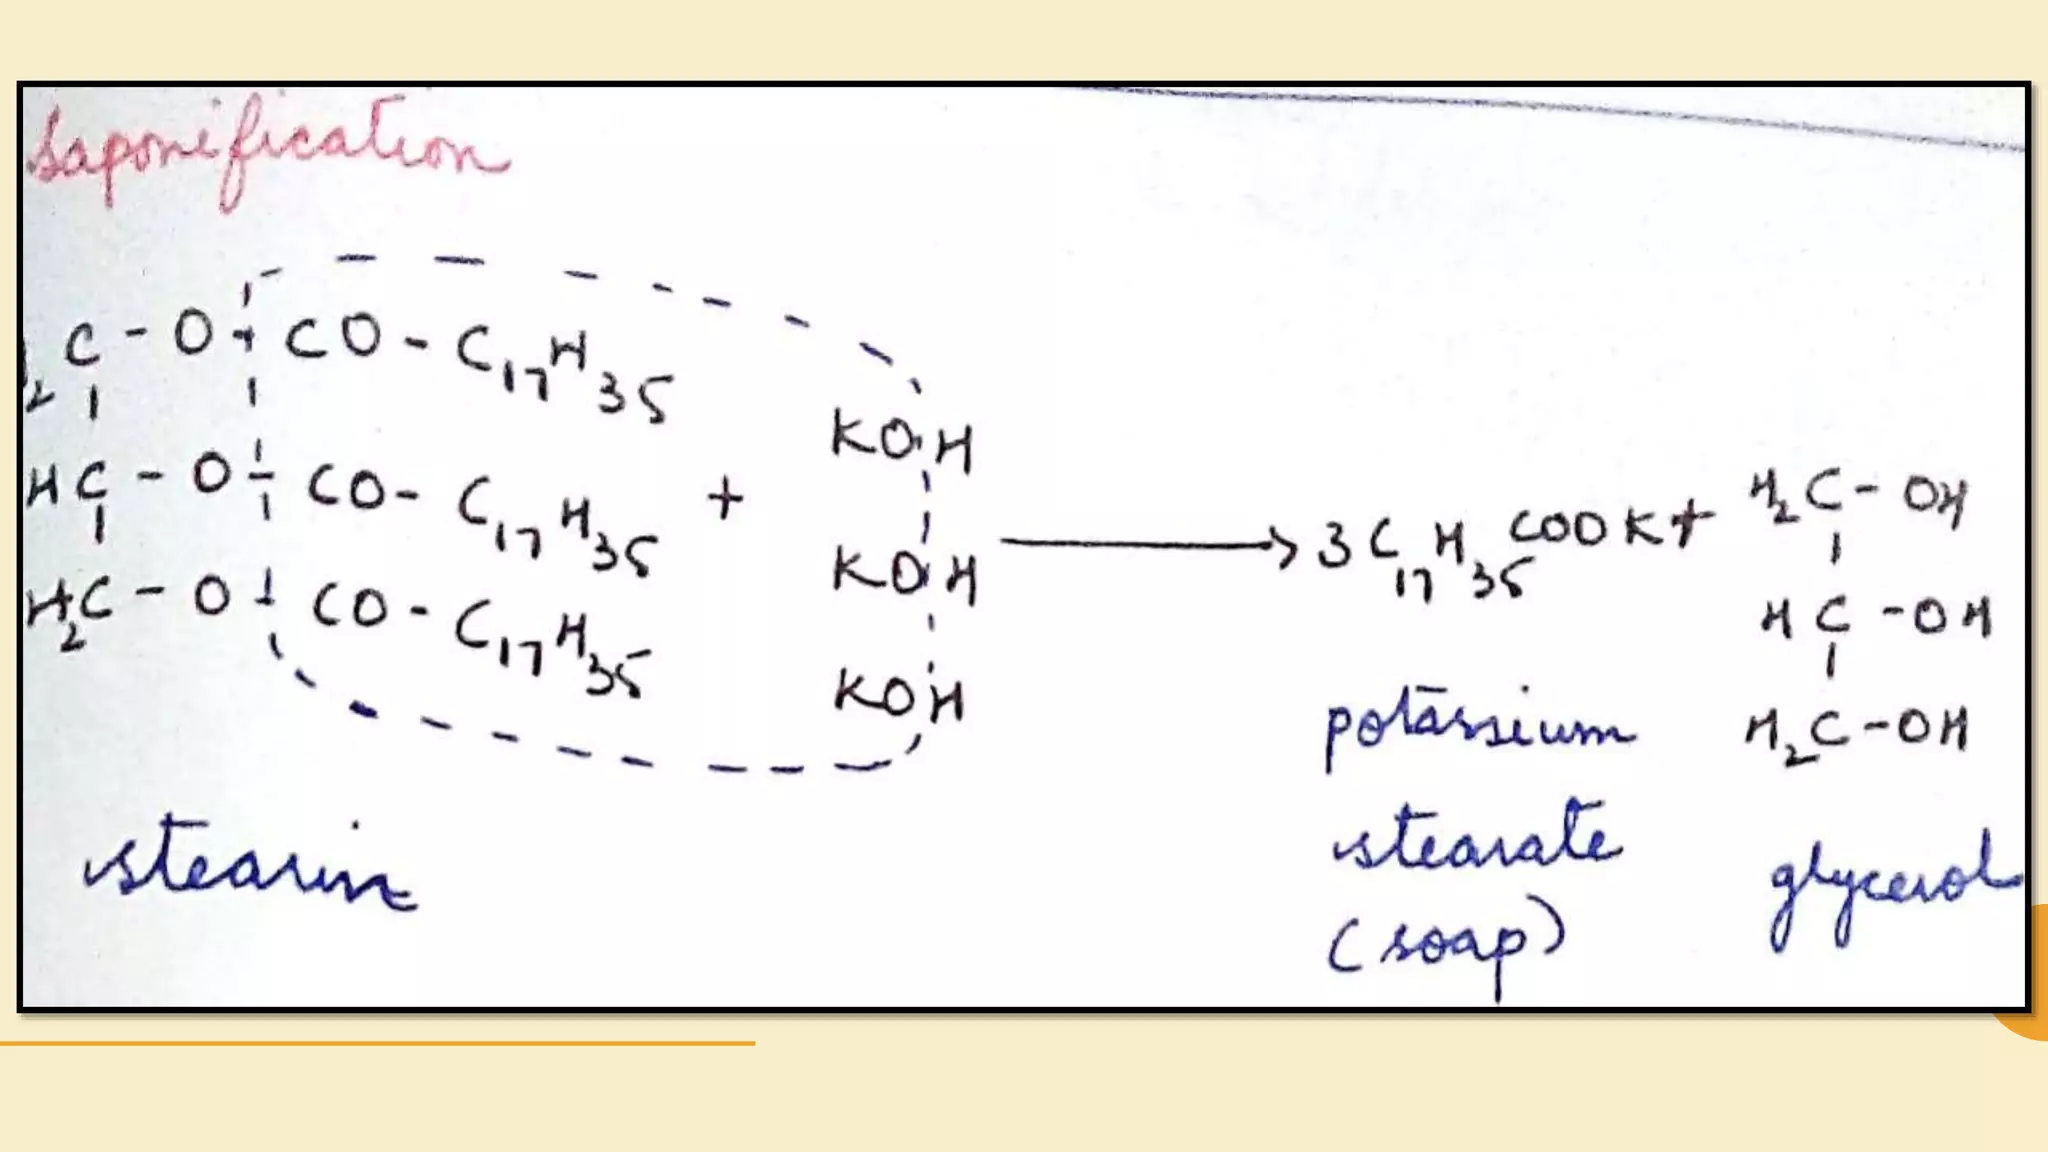 Saponification
₂C - O - CO - C₁₇H₃₅
HC - O - CO - C₁₇H₃₅
H₂C - O - CO - C₁₇H₃₅
+
KOH
KOH
KOH
→ 3C₁₇H₃₅COOK +
H₂C - OH
HC - OH
H₂C - OH
stearin
potassium
stearate
(soap)
glycerol